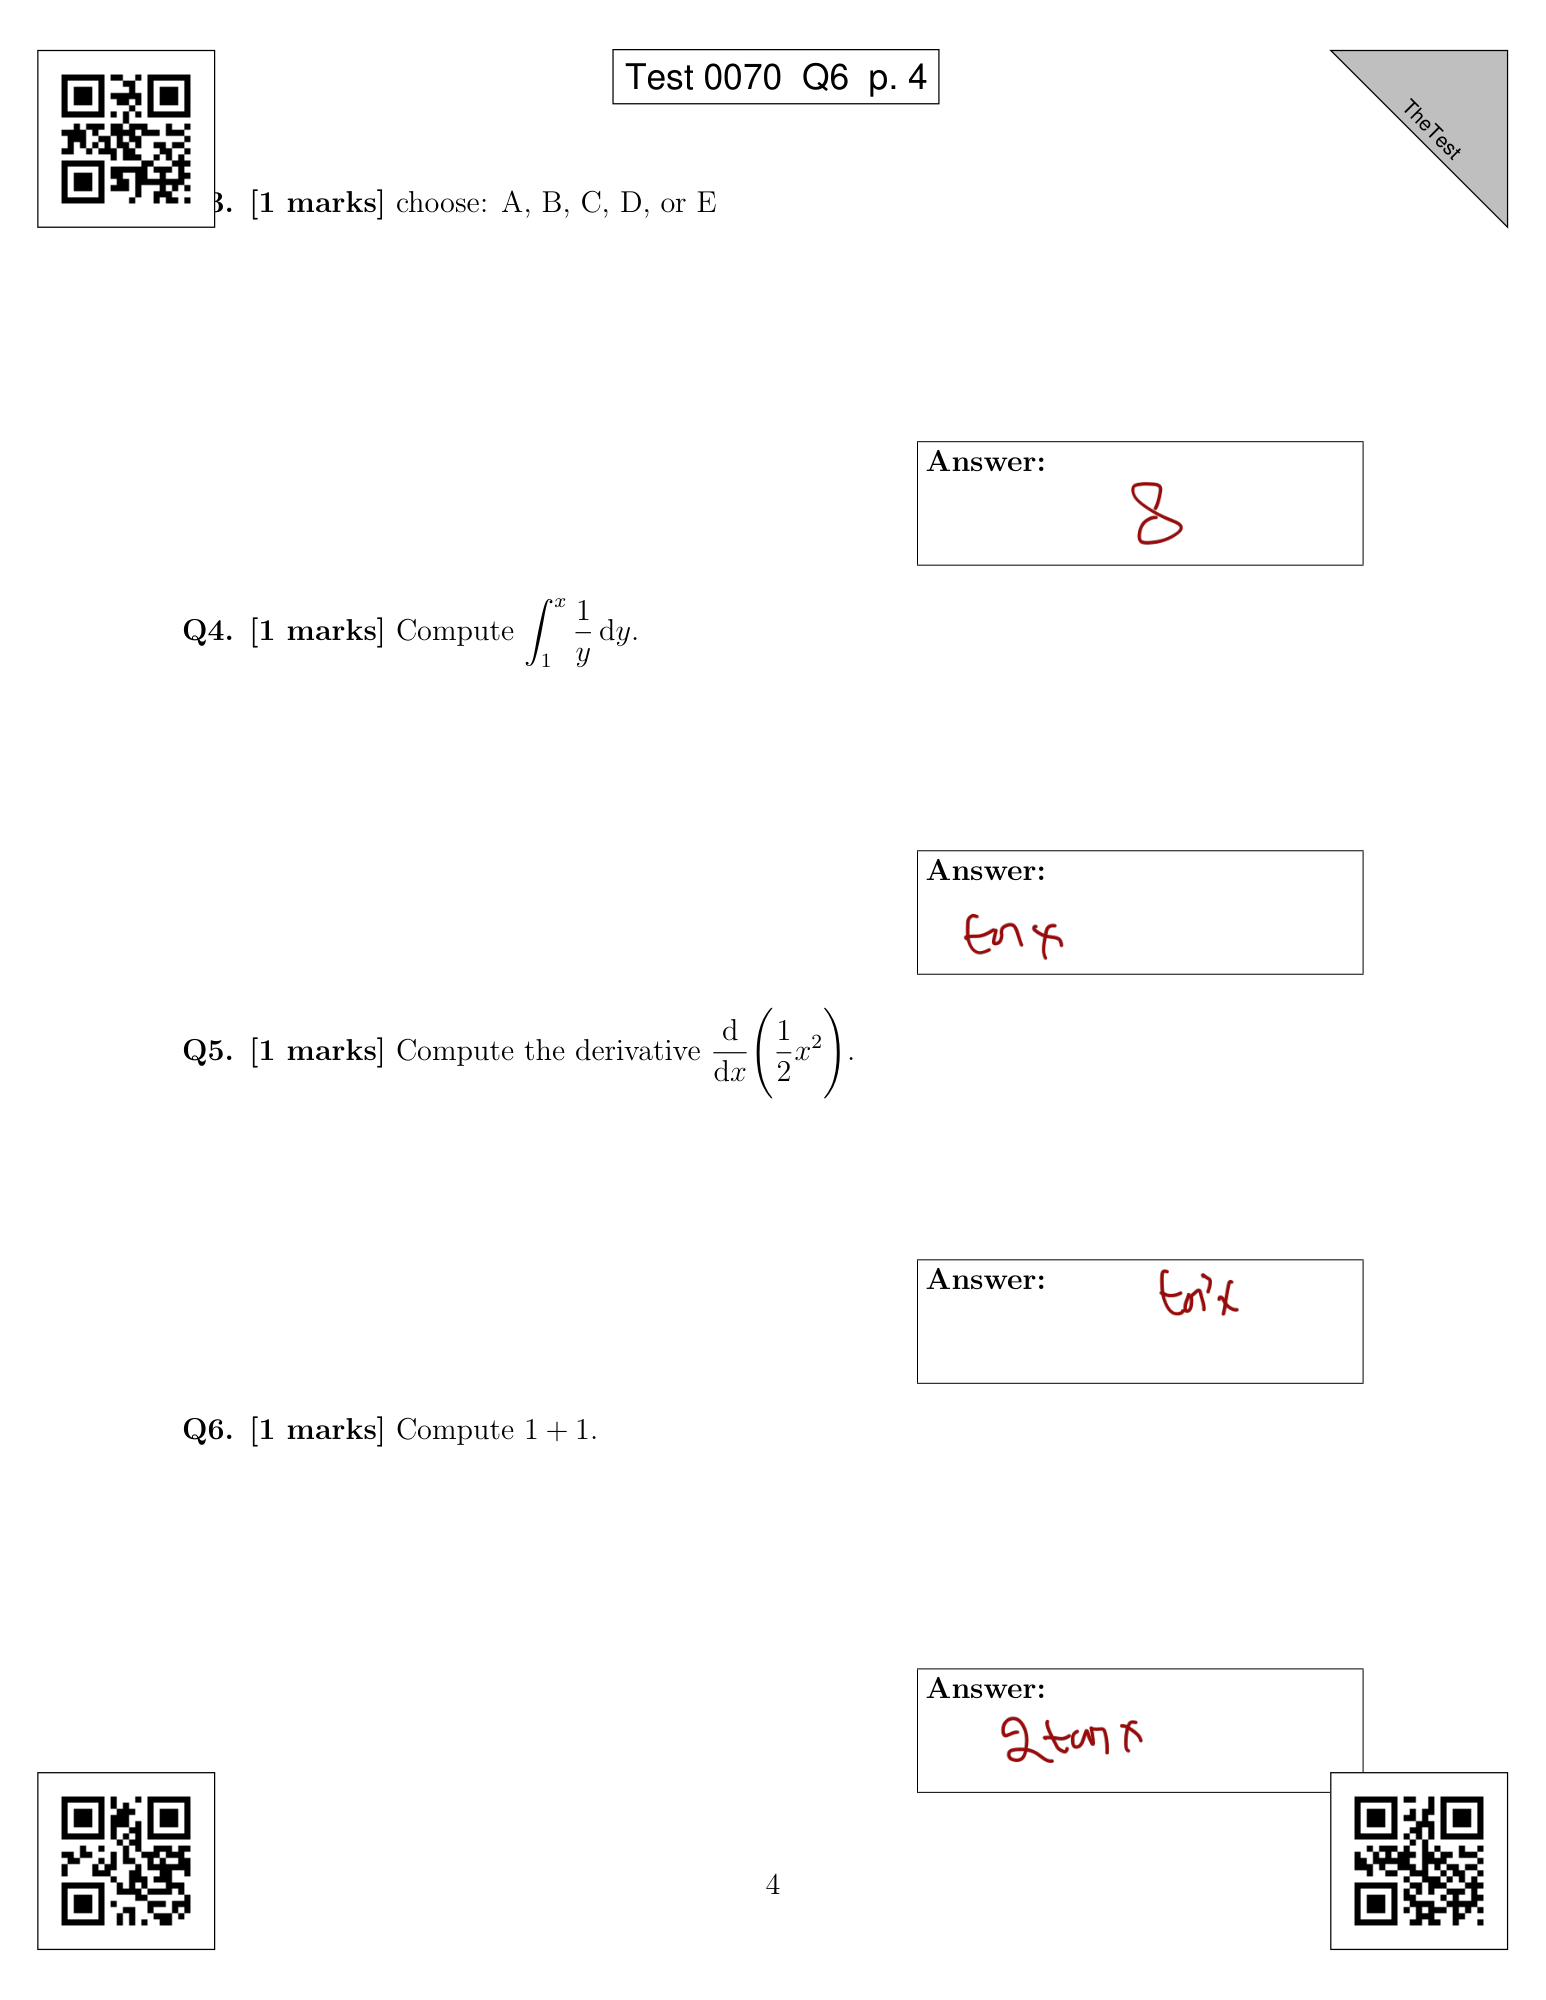 Test 0070 Q6 p. 4
TheTest
3. [1 marks] choose: A, B, C, D, or E
Answer:
8
Q4. [1 marks] Compute \int_1^x \frac{1}{y} dy.
Answer:
tan x
Q5. [1 marks] Compute the derivative \frac{d}{dx}\left(\frac{1}{2}x^2\right).
Answer:
Q6. [1 marks] Compute 1 + 1.
Answer:
2 tan x
4